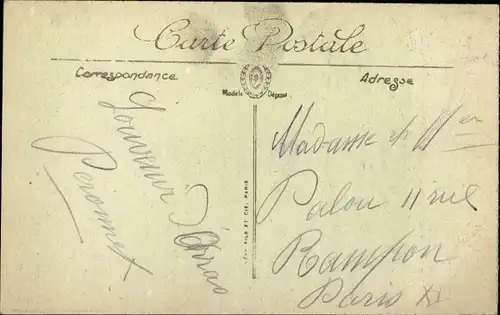 Carte Postale
Correspondance
Adresse
Modèle Déposé
Souvenir
d'Arras
Peronnet
LÉVY FILS ET CIE, PARIS
Madame et Mr
Palou 11 rue
Rampon
Paris XI